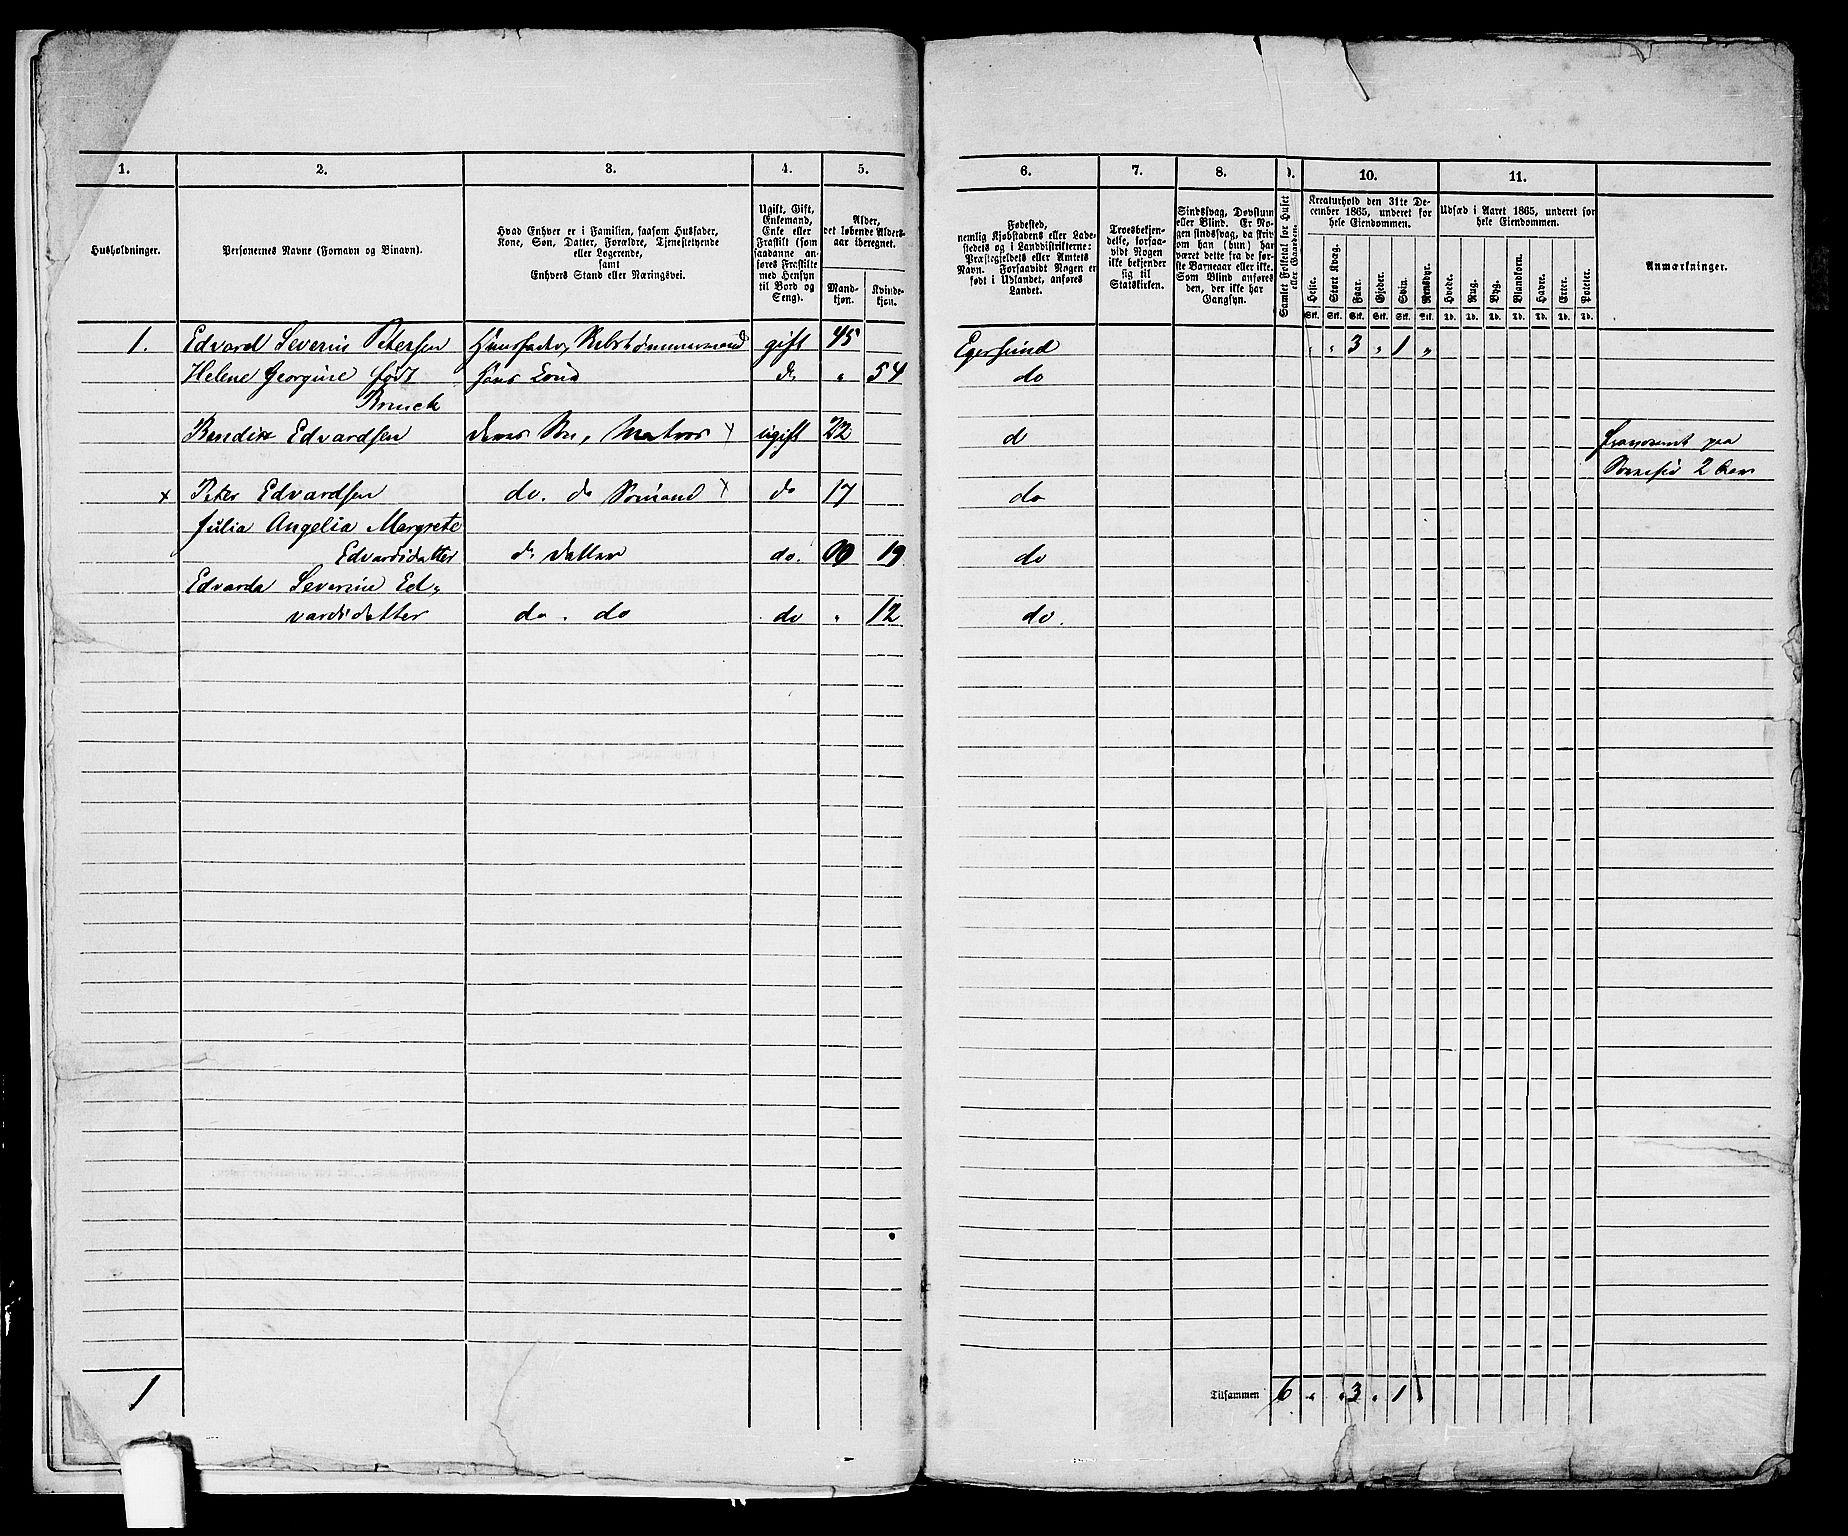 1. 2. 3. 4. 5. 6. 7. 8. 9. 10. 11.
Husholdninger.
Personernes Navne (Fornavn og Binavn).
Hvad Enhver er i Familien, saasom Husfader,
Kone, Søn, Datter, Forældre, Tjenestetyende
eller Logerende,
samt
Enhvers Stand eller Næringsvei.
Ugift, Gift,
Enkemand,
Enke eller
Fraskilt (som
saadanne an-
føres Fraskilte
med Hensyn
til Bord og
Seng).
Alder,
det løbende Alders-
aar iberegnet.
Mand-
kjøn.
Kvinde-
kjøn.
Fødested,
nemlig Kjøbstadens eller Lade-
stedets og i Landdistrikterne:
Præstegjeldets eller Amtets
Navn. Forsaavidt Nogen er
født i Udlandet, anføres
Landet.
Troesbekjen-
delse, forsaa-
vidt Nogen
ikke bekjender
sig til
Statskirken.
Sindssvag, Døvstum
eller Blind. Er No-
gen sindssvag, da skriv
om han (hun) har
været dette fra de før-
ste Barneaar eller ikke.
Som Blind anføres
den, der ikke har
Gangsyn.
Samlet Folketal for Huset
eller Gaarden.
Kreaturhold den 31te De-
cember 1865, underet for
hele Eiendommen.
Heste. Stort Kvæg. Faar. Gjeder. Svin. Rensdyr.
Stk. Stk. Stk. Stk. Stk. Stk.
Udsæd i Aaret 1865, underet for
hele Eiendommen.
Hvede. Rug. Byg. Blandkorn. Havre. Erter. Poteter.
Td. Td. Td. Td. Td. Td. Td.
Anmærkninger.
1. Edvard Severin Petersen Huusfader, gift 45 Egersund " " 3 " 1 "
Helene Georgine født hans Kone do " 54 do
Bruuck
Bendix Edvardsen deres Søn, Matros x ugift 22 d
2
x Peter Edvardsen do. do Sømand x do 17 do
Julia Angelia Margrete
Edvardsdatter do Datter do. 19 do
Edvarda Severine Ed-
vardsdatter do. do do " 12 do.
1 Tilsammen 6 " " 3 " 1 "